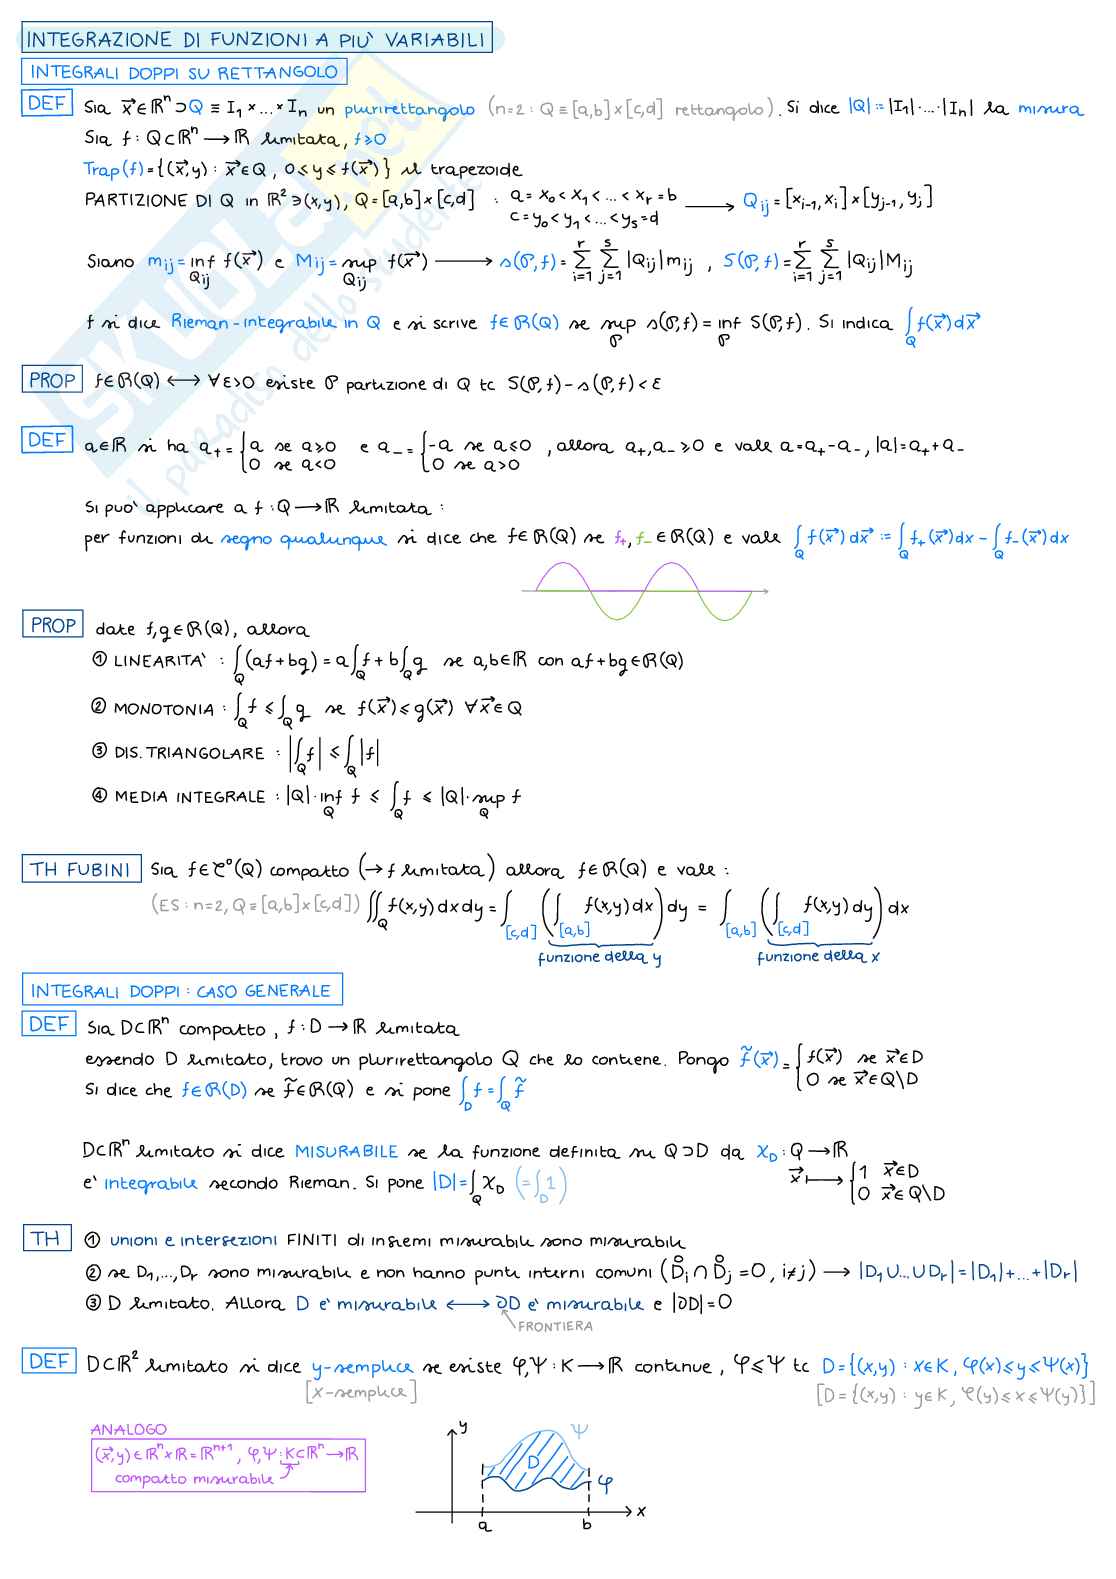 INTEGRAZIONE DI FUNZIONI A PIU' VARIABILI
INTEGRALI DOPPI SU RETTANGOLO
DEF Sia x⃗∈ℝⁿ⊃Q ≡ I₁×...×Iₙ un plurirettangolo (n=2 : Q≡[a,b]×[c,d] rettangolo). Si dice |Q| := |I₁|·...·|Iₙ| la misura
Sia f : Q⊂ℝⁿ ⟶ ℝ limitata, f⩾0
Trap(f)={(x⃗,y) : x⃗∈Q, 0⩽y⩽f(x⃗)} il trapezoide
PARTIZIONE DI Q in ℝ²∋(x,y), Q=[a,b]×[c,d] : a=x₀<x₁<...<xᵣ=b
c=y₀<y₁<...<yₛ=d ⟶ Qᵢⱼ=[xᵢ₋₁,xᵢ]×[yⱼ₋₁,yⱼ]
Siano mᵢⱼ= inf_{Qᵢⱼ} f(x⃗) e Mᵢⱼ= sup_{Qᵢⱼ} f(x⃗) ⟶ s(𝒫,f)= Σ_{i=1}^{r} Σ_{j=1}^{s} |Qᵢⱼ|mᵢⱼ , S(𝒫,f)= Σ_{i=1}^{r} Σ_{j=1}^{s} |Qᵢⱼ|Mᵢⱼ
f si dice Rieman-integrabile in Q e si scrive f∈ℛ(Q) se sup_𝒫 s(𝒫,f) = inf_𝒫 S(𝒫,f). Si indica ∫_Q f(x⃗)dx⃗
PROP f∈ℛ(Q) ⟷ ∀ε>0 esiste 𝒫 partizione di Q tc S(𝒫,f)-s(𝒫,f)<ε
DEF a∈ℝ si ha a₊= {a se a⩾0 e a₋= {-a se a⩽0 , allora a₊,a₋⩾0 e vale a=a₊-a₋, |a|=a₊+a₋
0 se a<0 0 se a>0
Si puo' applicare a f : Q⟶ℝ limitata :
per funzioni di segno qualunque si dice che f∈ℛ(Q) se f₊,f₋∈ℛ(Q) e vale ∫_Q f(x⃗)dx⃗ := ∫_Q f₊(x⃗)dx - ∫_Q f₋(x⃗)dx
PROP date f,g∈ℛ(Q), allora
① LINEARITA' : ∫_Q (af+bg) = a∫_Q f + b∫_Q g se a,b∈ℝ con af+bg∈ℛ(Q)
② MONOTONIA : ∫_Q f ⩽ ∫_Q g se f(x⃗)⩽g(x⃗) ∀x⃗∈Q
③ DIS. TRIANGOLARE : |∫_Q f| ⩽ ∫_Q |f|
④ MEDIA INTEGRALE : |Q|·inf_Q f ⩽ ∫_Q f ⩽ |Q|·sup_Q f
TH FUBINI Sia f∈𝒞⁰(Q) compatto (→ f limitata) allora f∈ℛ(Q) e vale :
(ES : n=2, Q≡[a,b]×[c,d]) ∬_Q f(x,y)dxdy = ∫_[c,d] (∫_[a,b] f(x,y)dx)dy = ∫_[a,b] (∫_[c,d] f(x,y)dy)dx
funzione della y funzione della x
INTEGRALI DOPPI : CASO GENERALE
DEF Sia D⊂ℝⁿ compatto, f : D⟶ℝ limitata
essendo D limitato, trovo un plurirettangolo Q che lo contiene. Pongo f̃(x⃗)= {f(x⃗) se x⃗∈D
0 se x⃗∈Q\D
Si dice che f∈ℛ(D) se f̃∈ℛ(Q) e si pone ∫_D f = ∫_Q f̃
D⊂ℝⁿ limitato si dice MISURABILE se la funzione definita su Q⊃D da χ_D : Q⟶ℝ
x⃗ ⟼ {1 x⃗∈D
0 x⃗∈Q\D
e' integrabile secondo Rieman. Si pone |D|=∫_Q χ_D (=∫_D 1)
TH ① unioni e intersezioni FINITI di insiemi misurabili sono misurabili
② se D₁,...,Dᵣ sono misurabili e non hanno punti interni comuni (D̊ᵢ∩D̊ⱼ=0, i≠j) ⟶ |D₁∪...∪Dᵣ|=|D₁|+...+|Dᵣ|
③ D limitato. Allora D e' misurabile ⟷ ∂D e' misurabile e |∂D|=0
FRONTIERA
DEF D⊂ℝ² limitato si dice y-semplice se esiste φ,Ψ : K⟶ℝ continue, φ⩽Ψ tc D={(x,y) : x∈K, φ(x)⩽y⩽Ψ(x)}
[x-semplice] [D={(x,y) : y∈K, φ(y)⩽x⩽Ψ(y)}]
ANALOGO
(x⃗,y)∈ℝⁿ×ℝ=ℝⁿ⁺¹, φ,Ψ : K⊂ℝⁿ→ℝ
compatto misurabile
y
Ψ
D
φ
x
a b
SKUOLA.net
il paradiso dello studente